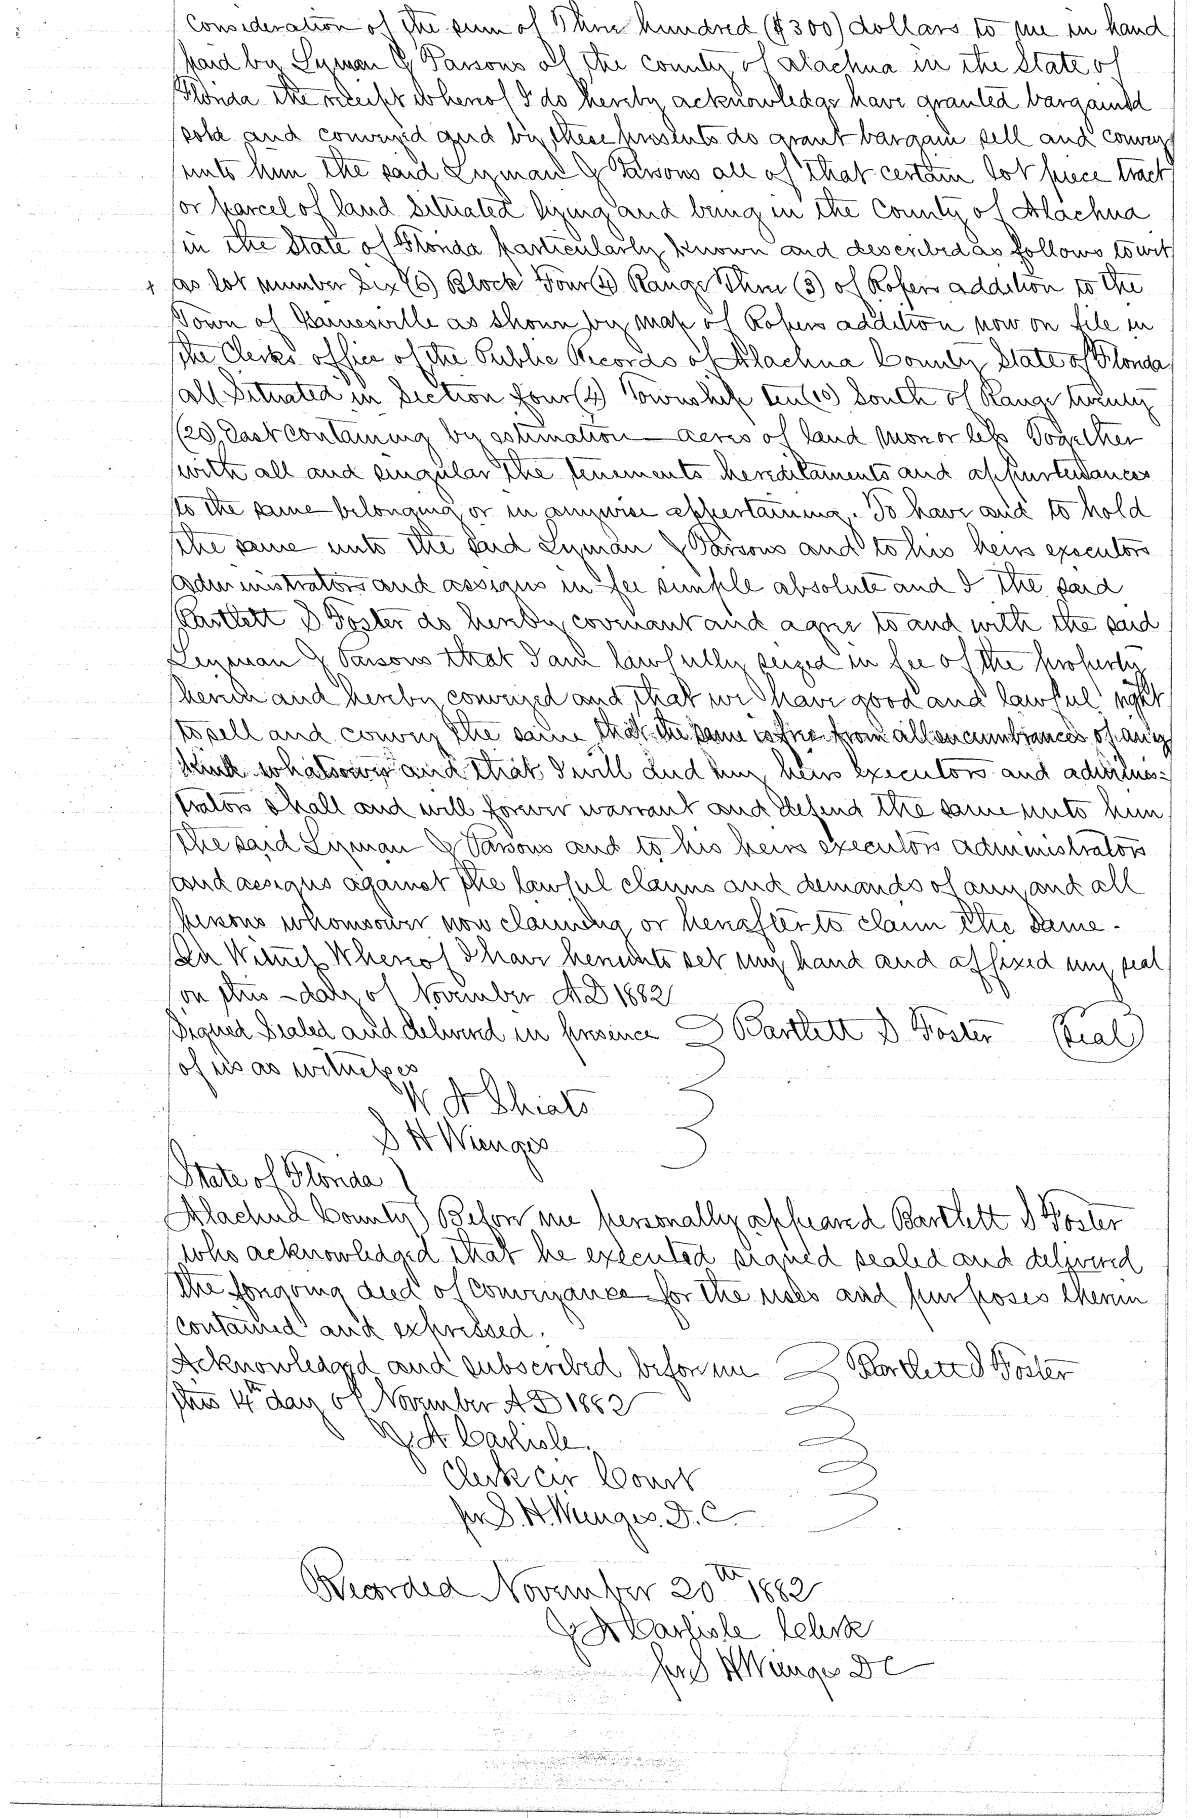 Consideration of the sum of Three hundred ($300) dollars to me in hand
paid by Lyman G Parsons of the county of Alachua in the State of
Florida the receipt whereof I do hereby acknowledge have granted bargained
sold and conveyed and by these presents do grant bargain sell and convey
unto him the said Lyman G Parsons all of that certain lot piece tract
or parcel of land Situated lying and being in the County of Alachua
in the State of Florida particularly known and described as follows to wit
+ as lot number Six (6) Block Four (4) Range Three (3) of Ropers addition to the
Town of Gainesville as shown by map of Ropers addition now on file in
the Clerks office of the Public Records of Alachua County State of Florida
all Situated in Section four (4) Township ten (10) South of Range twenty
(20) East containing by estimation — acres of land more or less Together
with all and singular the tenements hereditaments and appurtenances
to the same belonging or in anywise appertaining. To have and to hold
the same unto the said Lyman G Parsons and to his heirs executors
administrators and assigns in fee simple absolute and I the said
Bartlett S Foster do hereby covenant and agree to and with the said
Lyman G Parsons that I am lawfully seized in fee of the property
herein and hereby conveyed and that we have good and lawful right
to sell and convey the same that the same is free from all encumbrances of any
kind whatsoever and that I will and my heirs executors and adminis=
trators shall and will forever warrant and defend the same unto him
the said Lyman G Parsons and to his heirs executors administrators
and assigns against the lawful claims and demands of any and all
persons whomsoever now claiming or hereafter to claim the same.
In Witness Whereof I have hereunto set my hand and affixed my seal
on this — day of November AD 1882
Signed Sealed and delivered in presence Bartlett S Foster (Seal)
of us as witnesses
W A Shiats
S H Wienges
State of Florida )
Alachua County ) Before me personally appeared Bartlett S Foster
who acknowledged that he executed signed sealed and delivered
the forgoing deed of conveyance for the uses and purposes therein
contained and expressed.
Acknowledged and subscribed before me Bartlett S Foster
this 14th day of November AD 1882
J A Carlisle.
Clerk Cir Court
per S. H. Wienges. D. C.
Recorded November 20th 1882
J A Carlisle Clerk
per S H Wienges D C